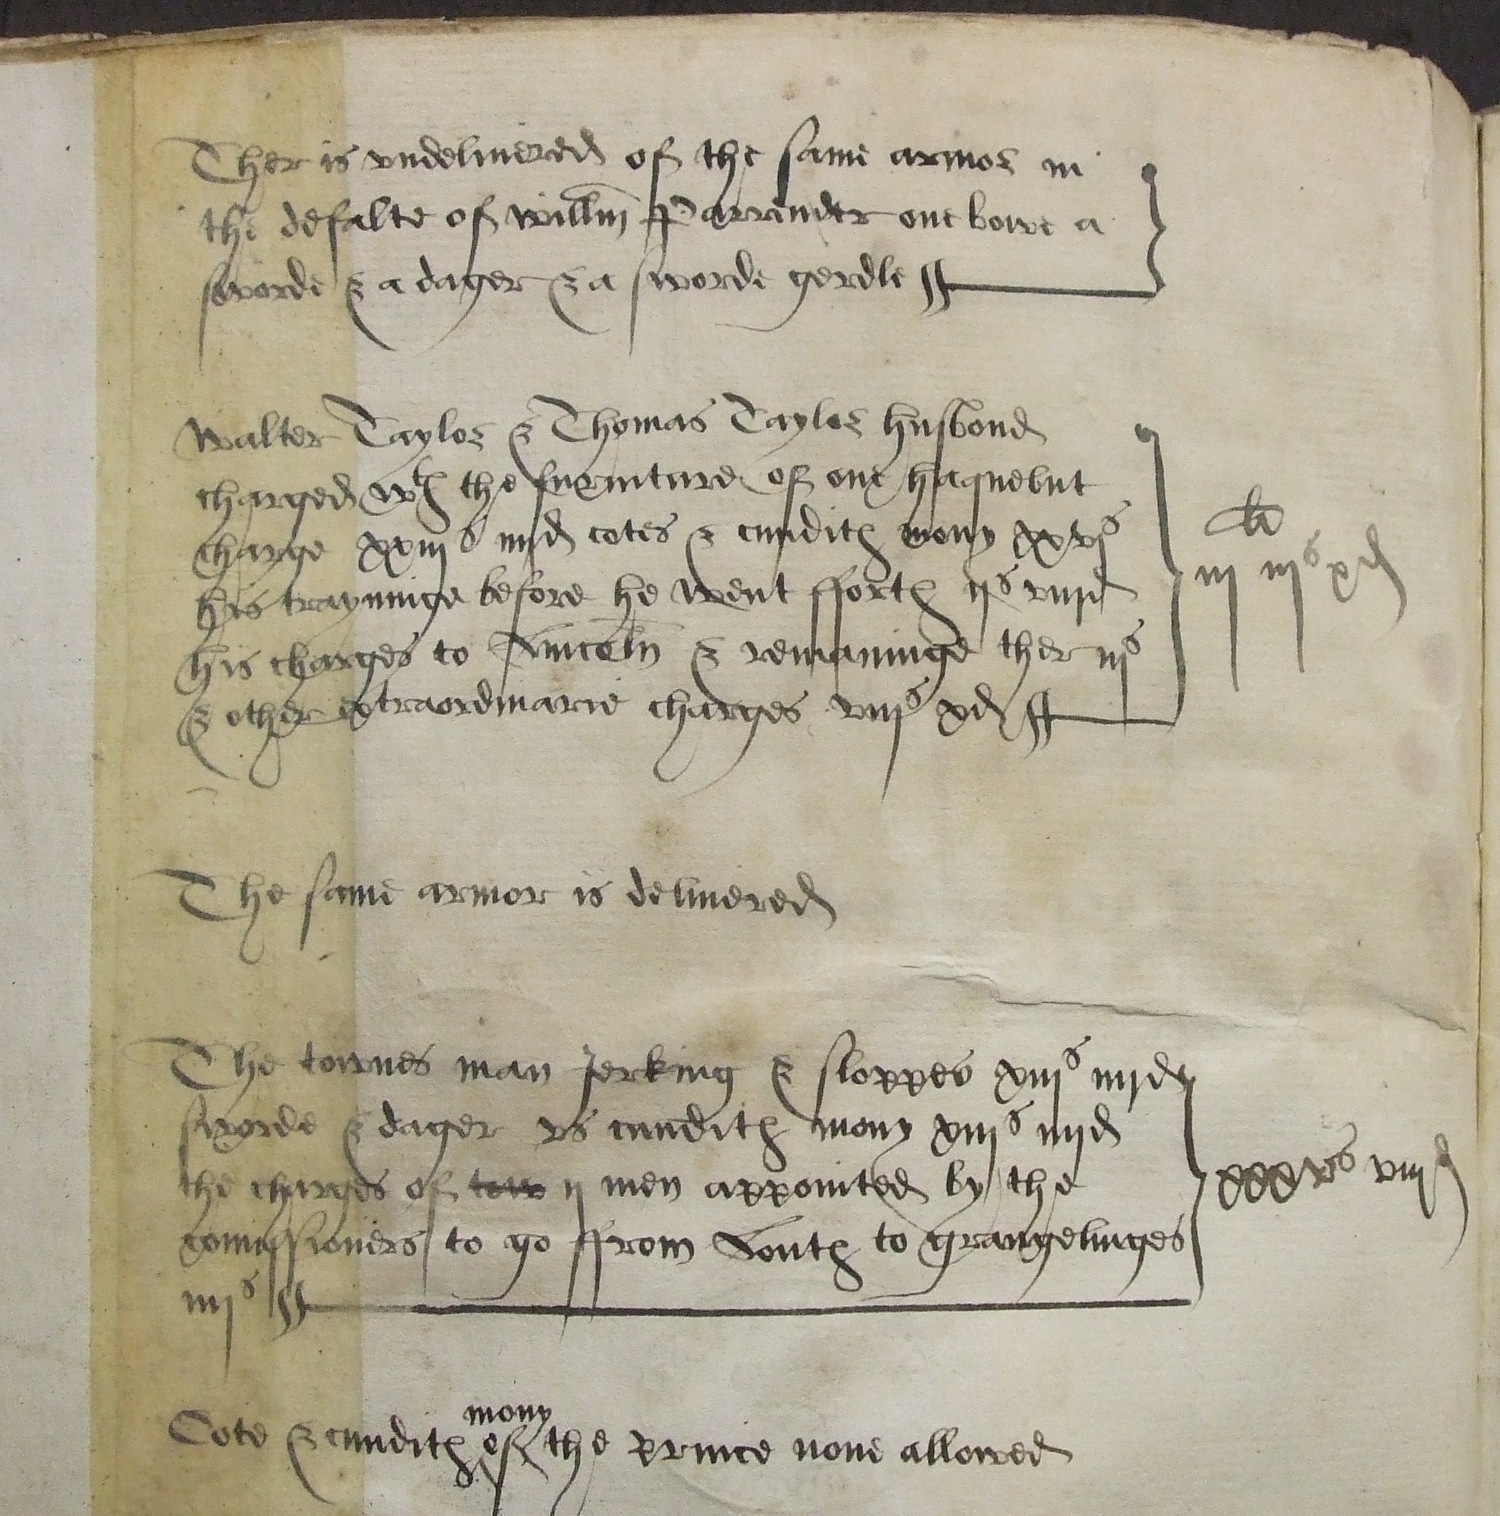 Ther is vndeliuered of the same armor in
the defalte of Willm Parrander one bowe a
sworde & a dager & a sworde gerdle
Walter Taylor & Thomas Taylor husbond
charged wth the furniture of one haquebut
charge xxiijs iiijd cotes & cundith mony xxvjs
his trayninge before he went fforth ijs viijd
his charges to Lincoln & remaininge ther iijs
& other extraordinarie charges viijs xd
li
iij iijs xd
The same armor is deliuered
The townes man Jerking & sloppes xiijs iiijd
sworde & dager vs cundith mony xiijs iiijd
the charges of tow ij men appointed by the
comissioners to go ffrom South to grangelinges
iiijs
xxxvs viijd
mony
Cote & cundith of the prince none allowed